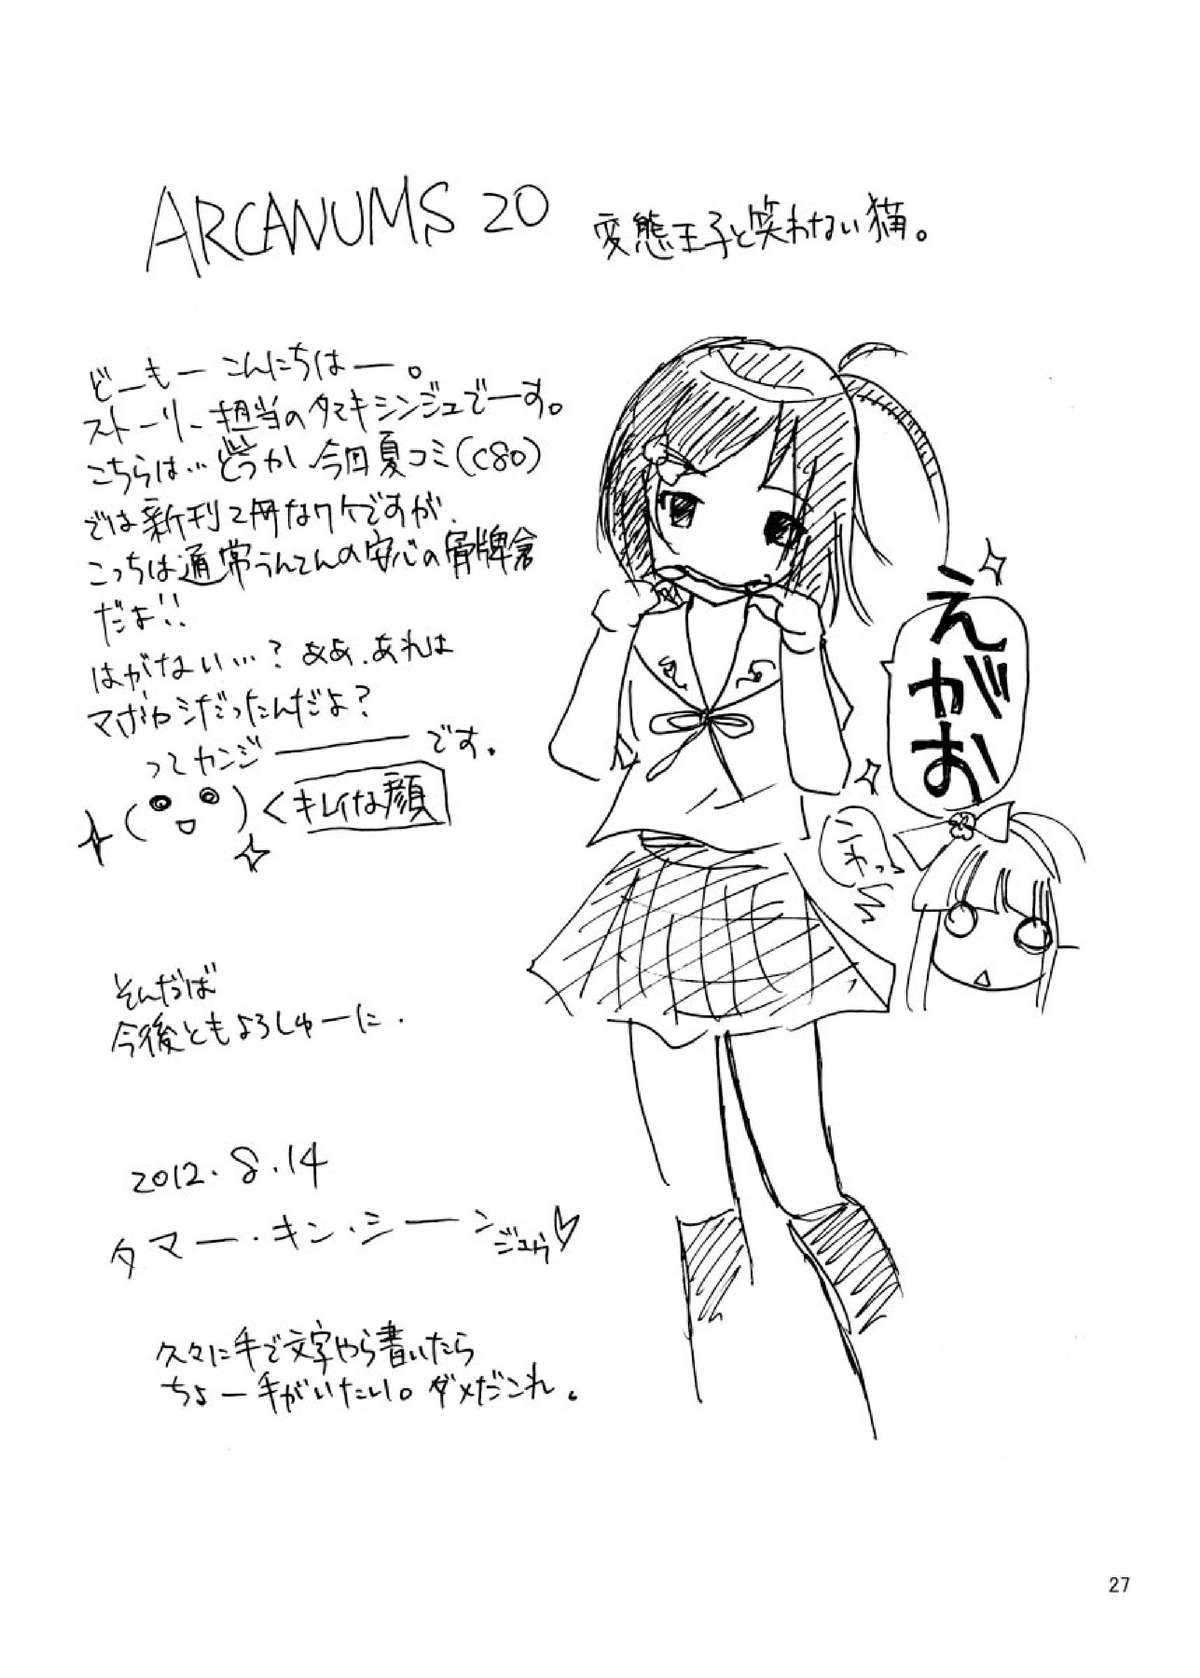 ARCANUMS 20
変態王子と笑わない猫。
どーもー こんにちはー。
ストーリー担当のタマキシンジュでーす。
こちらは… どうか 今回夏コミ(C80)
では新刊2冊なワケですが、
こっちは通常うんてんの安心の骨牌倉
だよ!!
はがない…? ああ、あれは
マボロシだったんだよ?
ってカンジーーーです。
キレイな顔
えがお
こわっ
そんだば
今後ともよろしゅーに.
2012.8.14
タマー・キン・シーン
ジュゥ♡
久々に手で文字やら書いたら
ちょー手がいたい。ダメだこれ。
27